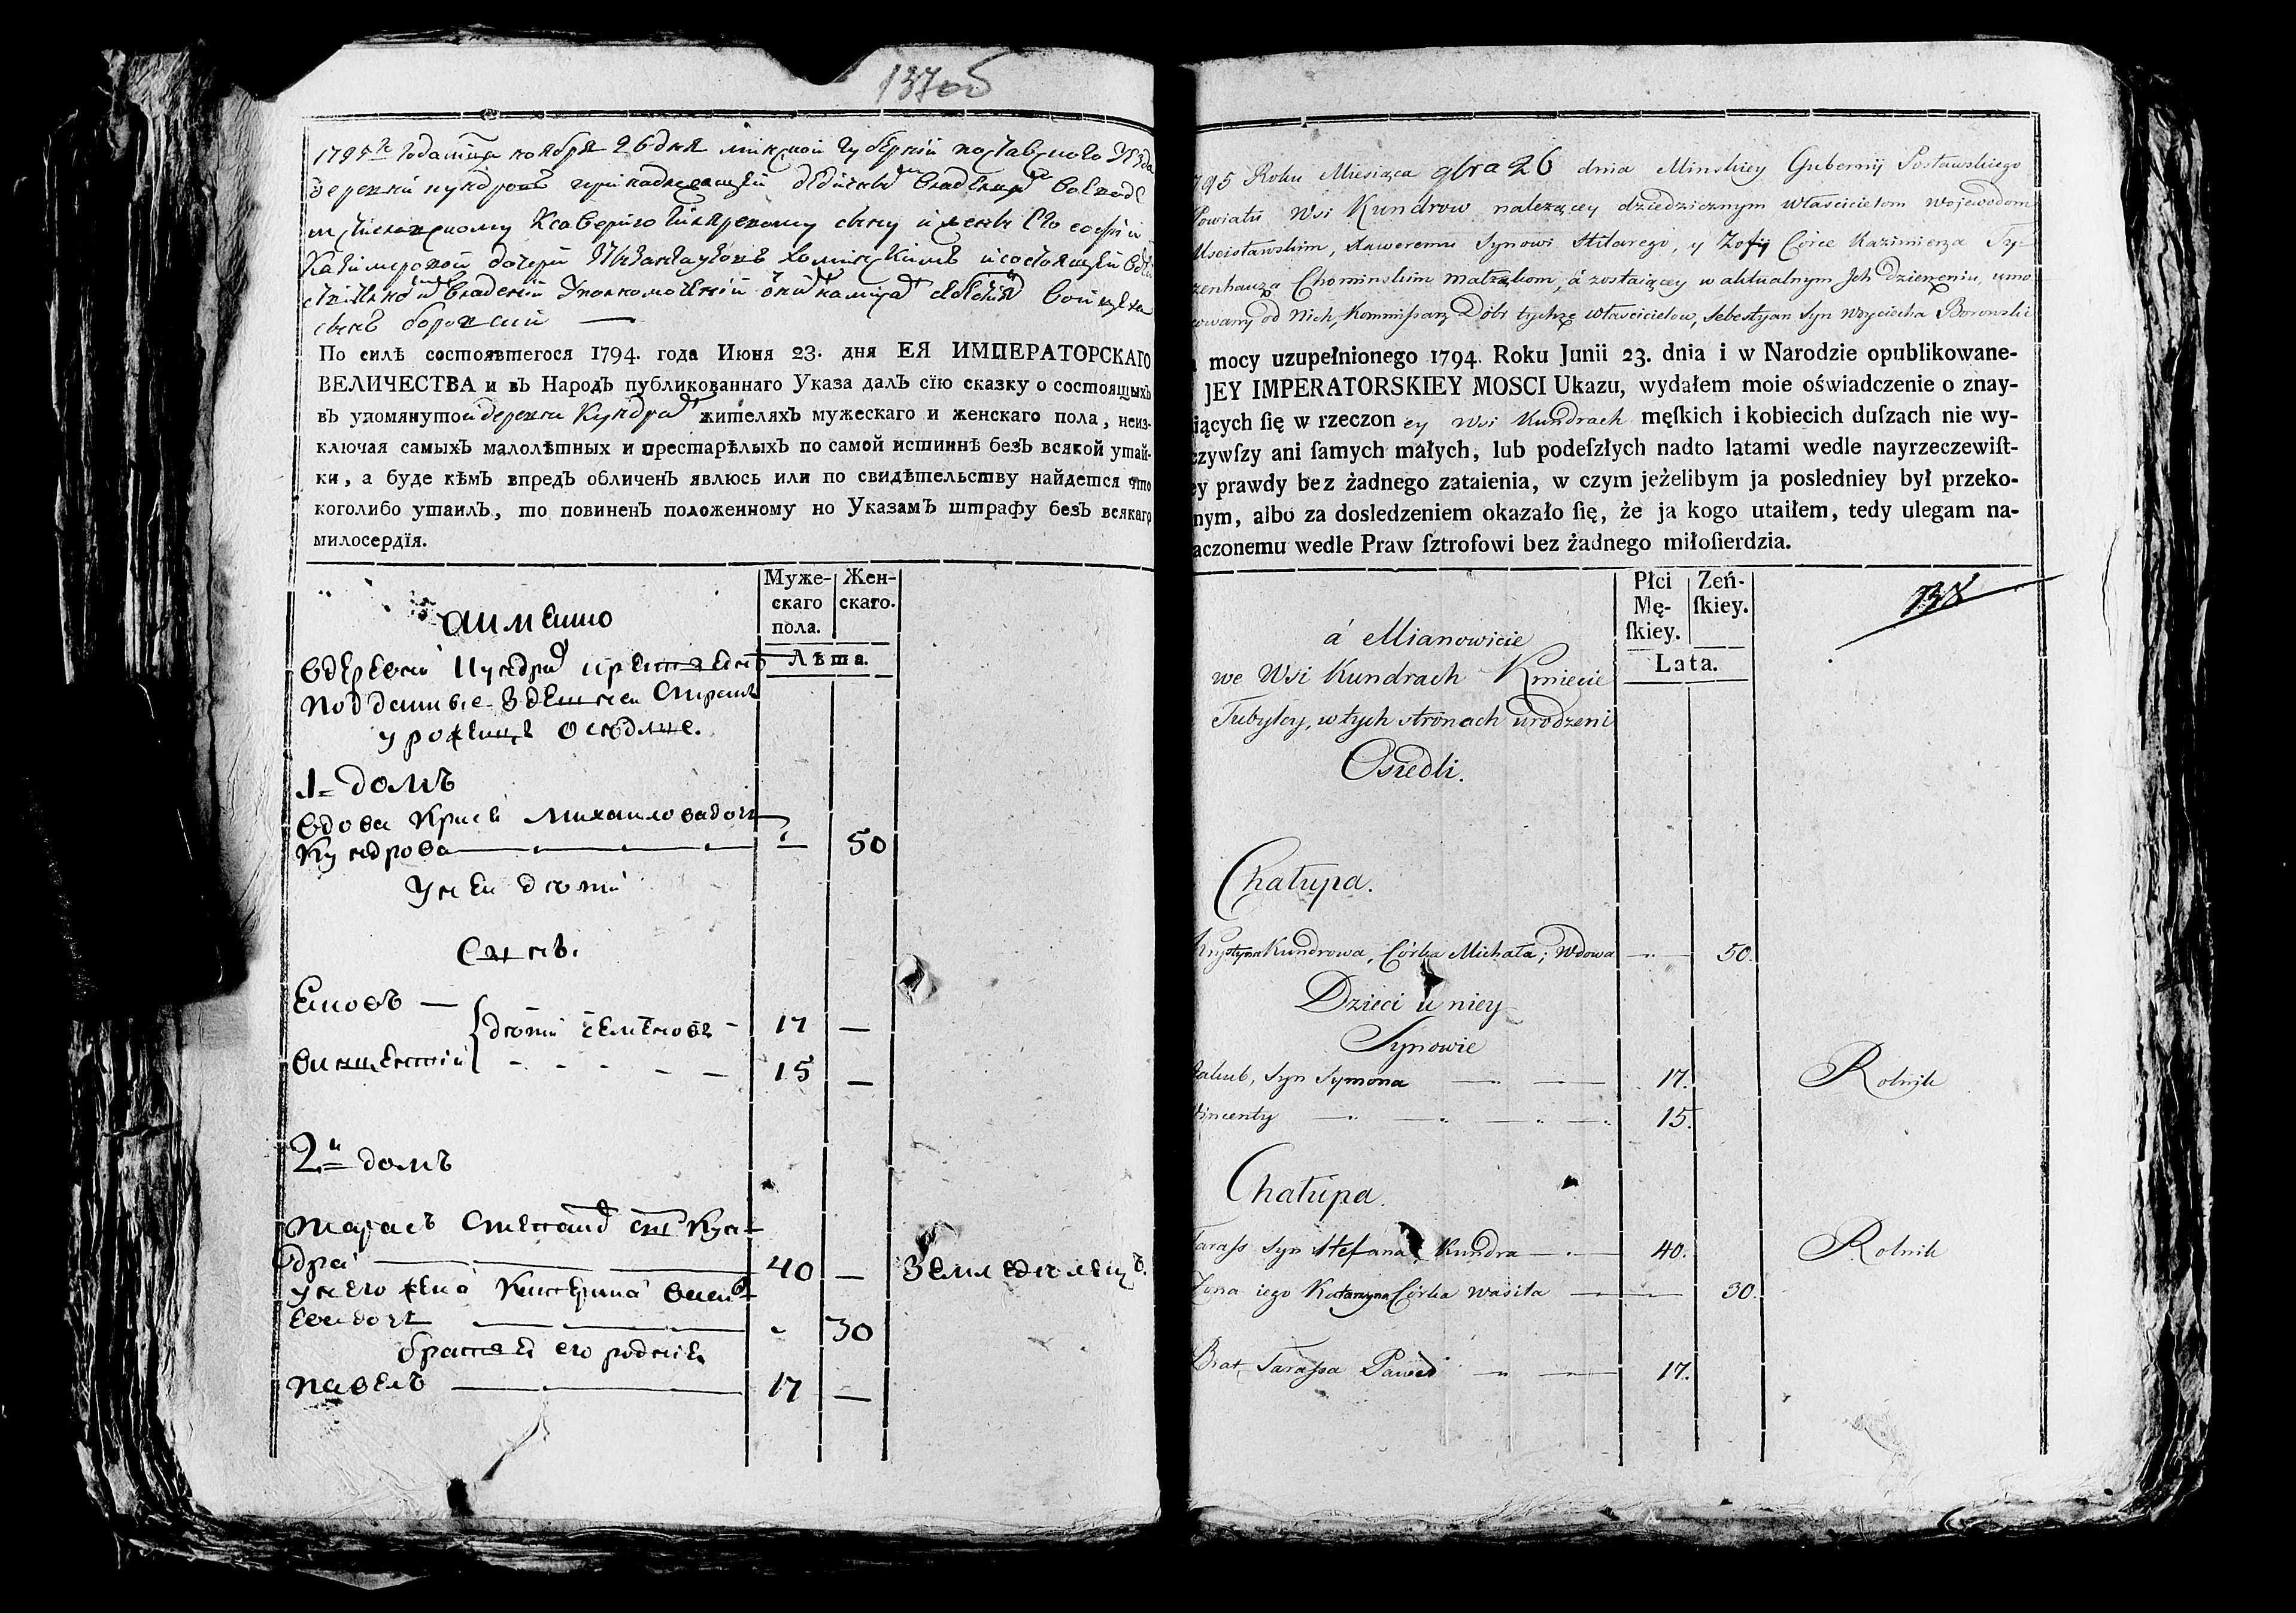 137об
1795го года мца ноября 26 дня минской губернии поставского уезда
деревни кундровъ принадлежащей
Ксаверию сыну и жене его софии
Казимеровой дочери
владении
сынъ
По силѣ состоявшегося 1794. года Июня 23. дня ЕЯ ИМПЕРАТОРСКАГО
ВЕЛИЧЕСТВА и въ Народъ публикованнаго Указа далъ сїю сказку о состоящыхъ
въ упомянутой деревни Кундрах жителяхъ мужескаго и женскаго пола, неиз-
ключая самыхъ малолѣтныхъ и престарѣлыхъ по самой истиннѣ безъ всякой утай-
ки, а буде кѣмъ впредъ обличенъ явлюсь или по свидѣтельству найдется что
коголибо утаилъ, то повиненъ положенному по Указамъ штрафу безъ всякаго
милосердїя.
Муже- Жен-
скаго скаго.
пола.
Лѣта.
а имянно
вдеревни Кундрах
подданные здешней стране
уроженцы оседлые.
1= домъ
вдова Михаилова доч
Кундрова — 50
У ней дети
Сынъ.
Еиовъ — дети семеновы - 17 —
винцентий - - - - 15 —
2й домъ
тарасъ степанов сын Кун-
дра — 40 — Земледелецъ.
у него жена Катерина васи-
ева доч — 30
братья его родные
павелъ — 17 —
795 Roku Miesiąca 9bra 26 dnia Minskiey Gubernij Postawskiego
Powiatu Wsi Kundrow należącey dziedzicznym właścicielom Wojewodom
Mscisławskim, Xaweremu Synowi Hilarego, y Zofij Córce Kazimierza Ty-
zenhauza Chominskim małżąkom, á zostaiącey w aktualnym Jch dzierżeniu, umo
cowany od Nich, Kommissarz Dóbr tychże właścicielow, Sebestyan Syn Woyciecha Borowski
mocy uzupełnionego 1794. Roku Junii 23. dnia i w Narodzie opublikowane-
JEY IMPERATORSKIEY MOSCI Ukazu, wydałem moie oświadczenie o znay-
iących ſię w rzeczon ey Wsi Kundrach męſkich i kobiecich duſzach nie wy-
czywſzy ani ſamych małych, lub podeſzłych nadto latami wedle nayrzeczewiſt-
ey prawdy bez żadnego zataienia, w czym jeżelibym ja posledniey był przeko-
nym, albo za dosledzeniem okazało ſię, że ja kogo utaiłem, tedy ulegam na-
aczonemu wedle Praw ſztrofowi bez żadnego miłoſierdzia.
Płci Zeń-
Mę- ſkiey.
ſkiey.
Lata.
138
á Mianowicie
we Wsi Kundrach Kmiecie
Tubylcy, w tych stronach urodzeni
Osiedli.
Chałupa.
Krystyna Kundrowa, Córka Michała; Wdowa — 50.
Dzieci u niey
Synowie
Jakub, Syn Symona — 17. Rolnik
Wincenty — 15.
Chałupa.
Tarass Syn Stefana Kundra — 40. Rolnik
Zona iego Katarzyna Córka Wasila — 30.
Brat Tarassa Paweł — 17.